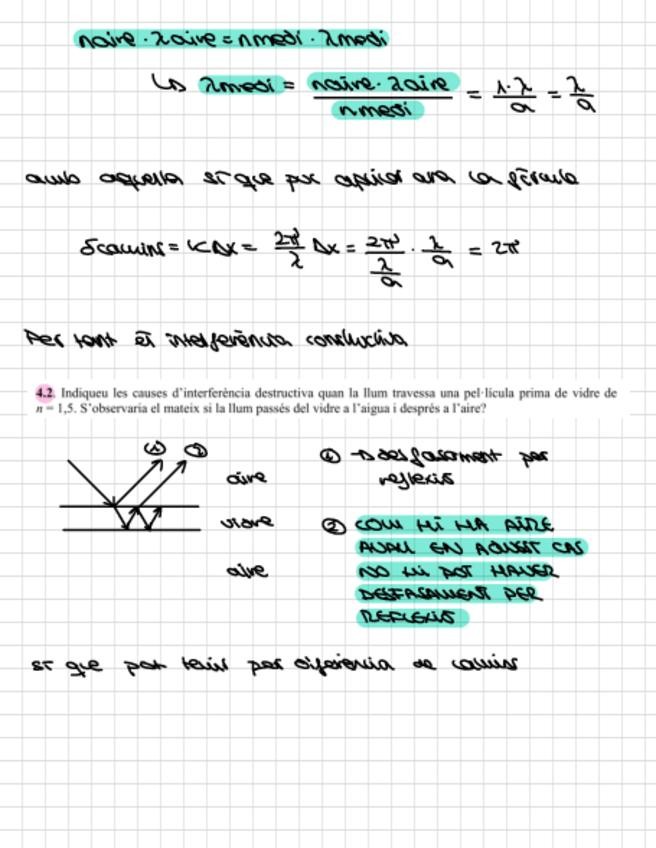 naire · λaire = nmedi · λmedi
↳ λmedi = naire · λaire / nmedi = 1·λ / a = λ / a
amb aquella sí que puc aplicar ara la fórmula
δcamins = KΔx = 2π/λ Δx = 2π/(λ/a) · λ/a = 2π
Per tant és interferència constructiva
4.2. Indiqueu les causes d'interferència destructiva quan la llum travessa una pel·lícula prima de vidre de
n = 1,5. S'observaria el mateix si la llum passés del vidre a l'aigua i després a l'aire?
① ②
aire
vidre
aire
① → desfasament per
reflexió
② COM HI HA AIRE
AVALL EN AQUEST CAS
NO HI POT HAVER
DESFASAMENT PER
REFLEXIÓ
sí que pot tenir per diferència de camins